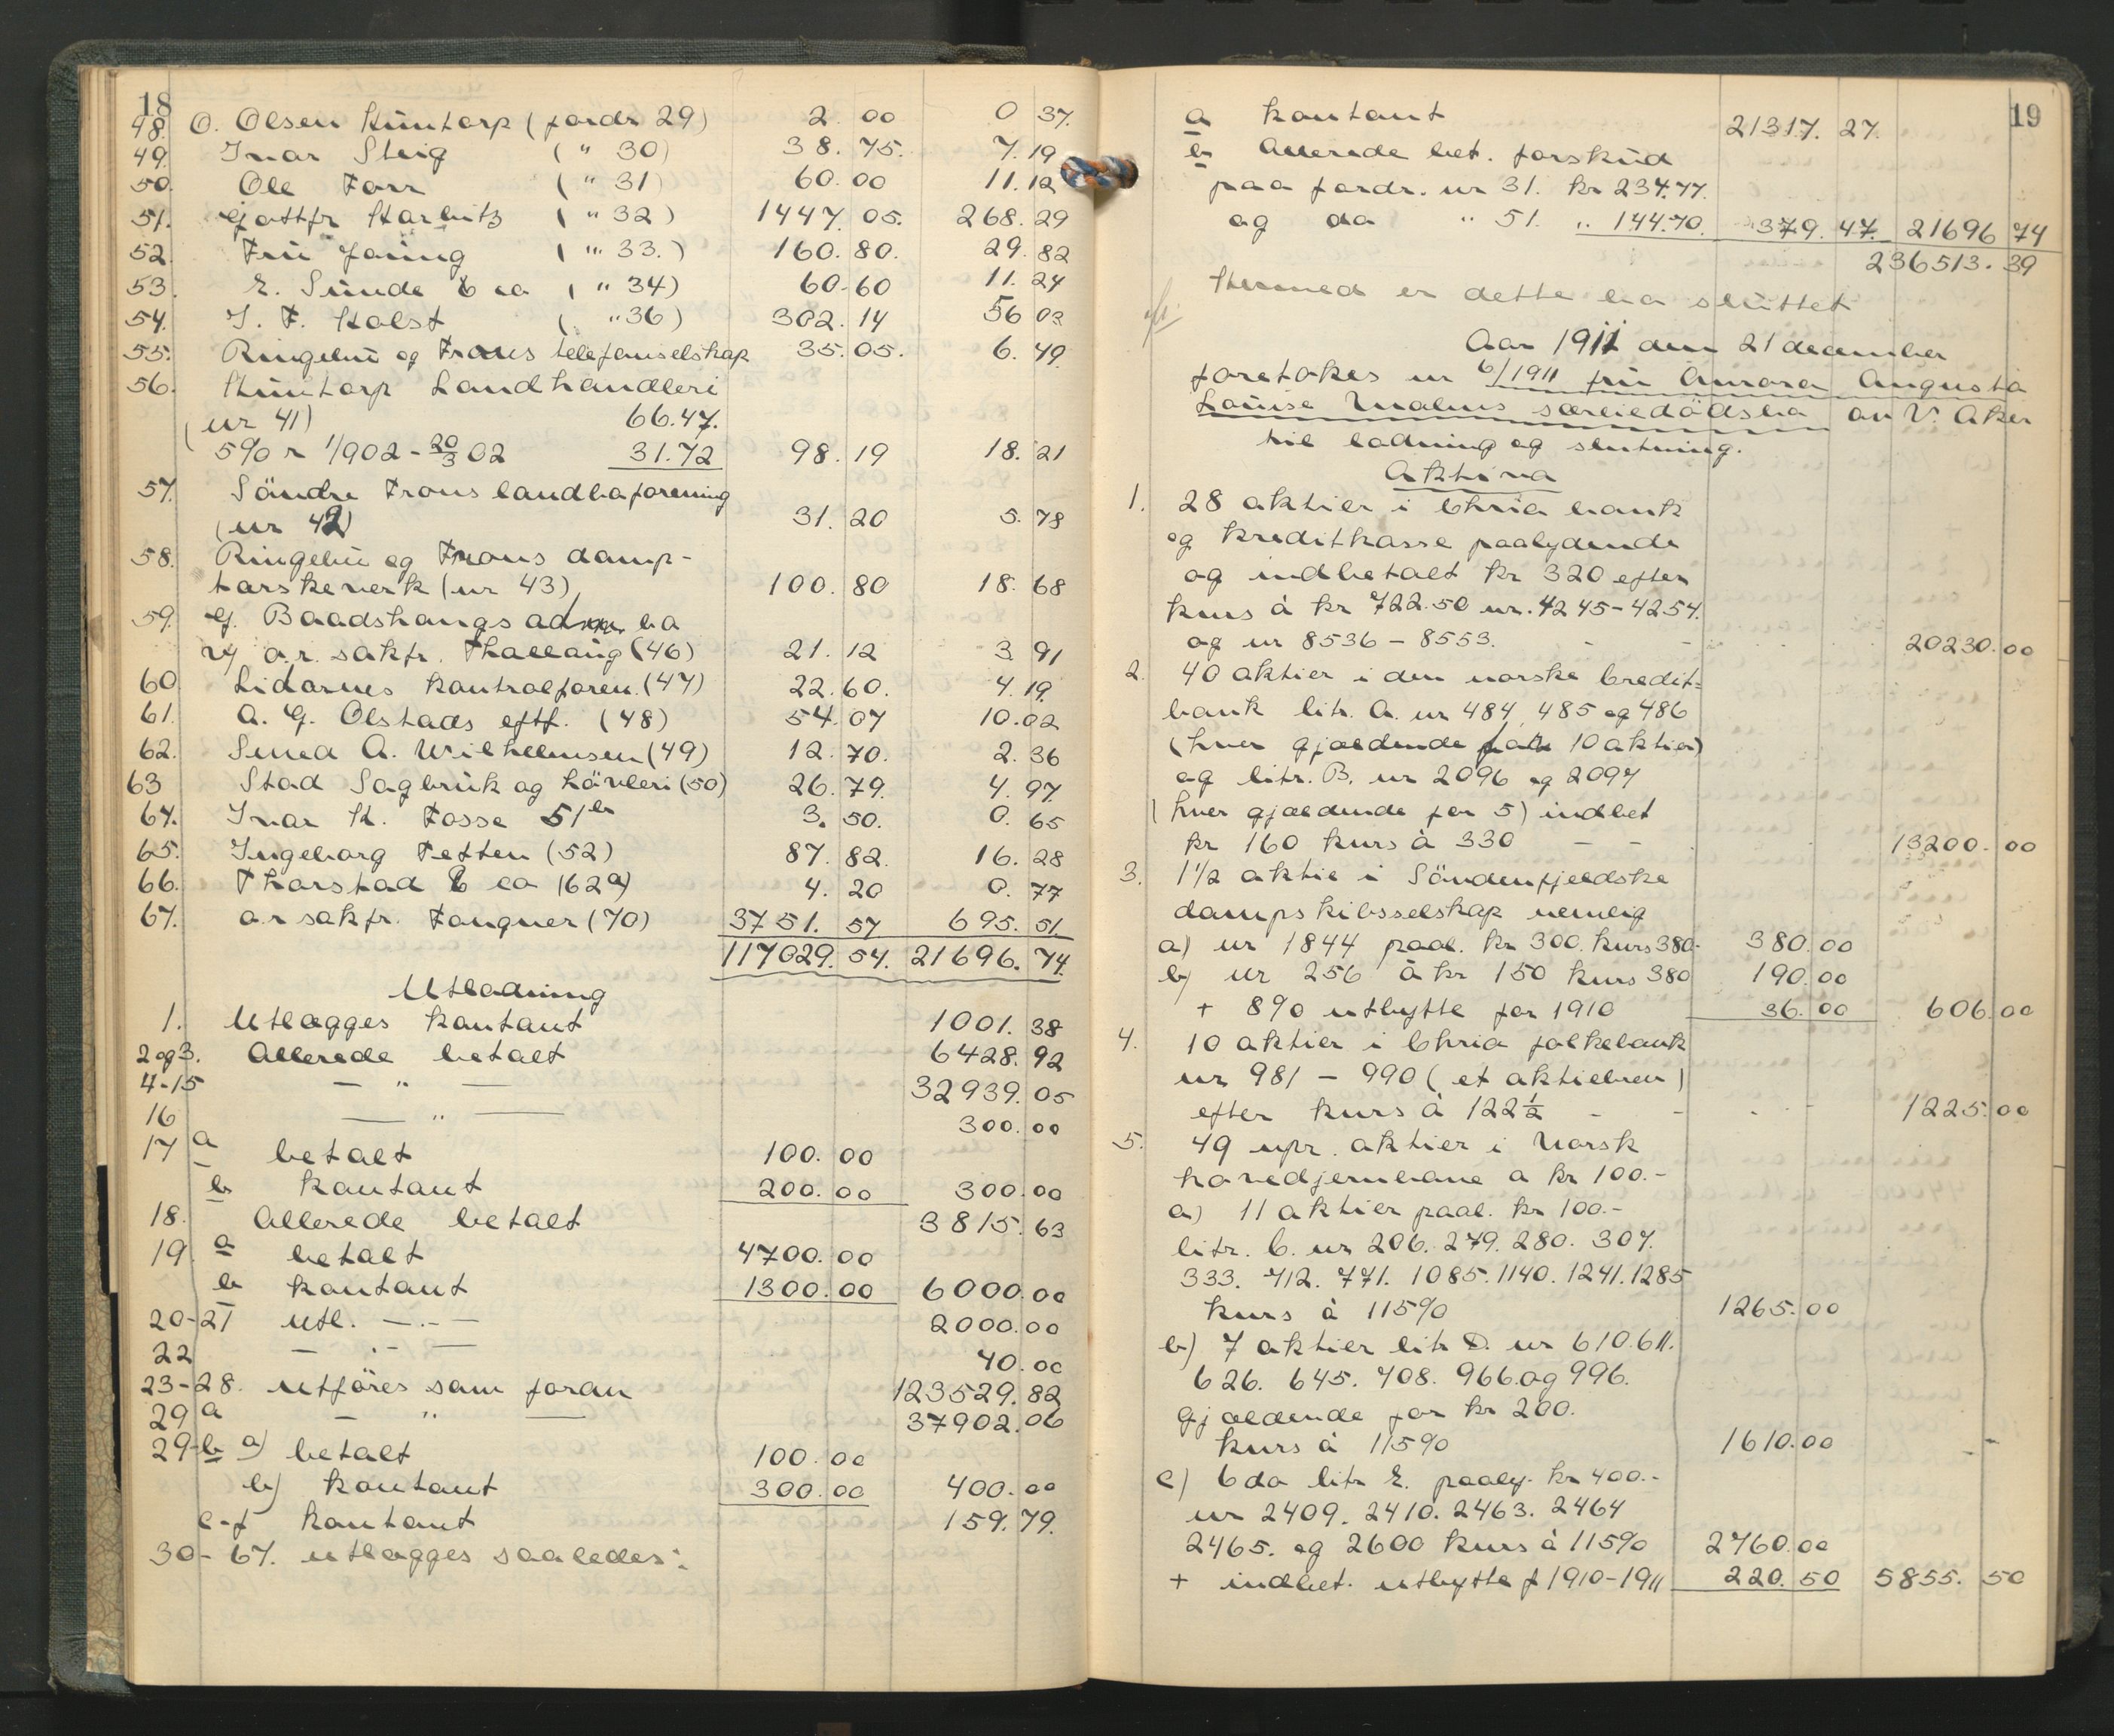 18
48. O. Olsen Kuntorp (fordr 29) 2.00 0 37.
49. Ivar Steig ( " 30) 38.75. 7.19
50. Ole Forr ( " 31) 60.00 11.12
51. Gottfr Harbitz ( " 32) 1447.05. 268.29
52. Fru Jning ( " 33.) 160.80. 29.82
53. E. Sunde & co ( " 34) 60.60 11.24
54. J. F. Holst ( " 36) 302.14 56 03
55. Ringebu og Frons telefonselskap 35.05. 6.49
56. Kuntorp Landhandleri
(nr 41) 66.47.
5% r 1/902 - 20/3 02 31.72 98.19 18.21
57. Søndre Frons landboforening
(nr 42) 31.20 5.78
58. Ringebu og Frons damp-
tørskeverk (nr 43) 100.80 18.68
59. G. Baadshaugs adm. bo
v/ o.r. sakfr. Thallaug (46) 21.12 3 91
60 Lidarnes kontrolforen. (47) 22.60. 4.19.
61. A. G. Olstads eftf. (48) 54.07 10.02
62. Smed A. Wilhelmsen (49) 12.70. 2.36
63 Stad Sagbruk og høvleri (50) 26.79. 4.97.
64. Ivar H. Fosse 51 b 3.50. 0.65
65. Ingeborg Tetten (52) 87.82. 16.28
66. Thorstad & co (62 a) 4.20 0.77
67. o.r sakfr. Fougner (70) 3751.57 695.51
117029.54. 21696.74.
Utlodning
1. Utlægges kontant 1001.38
2 og 3. Allerede betalt 6428.92
4-15 — " — 32939.05
16 — " — 300.00
17 a betalt 100.00
b kontant 200.00 300.00
18. Allerede betalt 3815.63
19 a betalt 4700.00
b kontant 1300.00 6000.00
20-21 utl. — . — 2000.00
22 — . — 40.00
23-28. utføres som foran 123529.82
29 a — " — 37902.06
29-b a) betalt 100.00
b) kontant 300.00 400.00
c-f kontant 159.79.
30-67. utlægges saaledes:
19
a kontant 21317.27.
b Allerede bet. forskud
paa fordr. nr 31. kr 234.77.
og do " 51. " 144.70. 379.47. 21696 74
236513.39
Hermed er dette bo sluttet
Aar 1911 den 21 december
foretokes nr 6/1911 fru Aurora Augusta
Louise Malms særeiedødsbo av V. Aker
til lodning og slutning.
Aktiva
1. 28 aktier i Chria bank
og kreditkasse paalydende
og indbetalt kr 320 efter
kurs à kr 722.50 nr. 4245-4254.
og nr 8536 - 8553. - - 20230.00
2. 40 aktier i den norske Credit=
bank litr. A. nr 484, 485 og 486
(hver gjældende for 10 aktier)
og litr. B. nr 2096 og 2097
(hver gjældende for 5) indbet
kr 160 kurs à 330 — — 13200.00
3. 1 1/2 aktie i Søndenfjeldske
dampskibsselskap nemlig
a) nr 1844 paal. kr 300. kurs 380- 380.00
b) nr 256 à kr 150 kurs 380 190.00
+ 8% utbytte for 1910 36.00 606.00
4. 10 aktier i Chria folkebank
nr 981 - 990 (et aktiebrev)
efter kurs à 122 1/2 - - 1225.00
5. 49 upr. aktier i Norsk
hovedjernbane a kr 100.-
a) 11 aktier paal. kr 100.-
litr. C. nr 206. 279. 280. 307.
333. 712. 771. 1085. 1140. 1241. 1285
kurs à 115% 1265.00
b) 7 aktier litr D. nr 610. 611.
626. 645. 708. 966. og 996.
gjældende for kr 200.
kurs à 115% 1610.00
c) 6 do litr E. paaly. kr 400.-
nr 2409. 2410. 2463. 2464
2465. og 2600 kurs à 115% 2760.00
+ indbet. utbytte f 1910-1911 220.50 5855.50